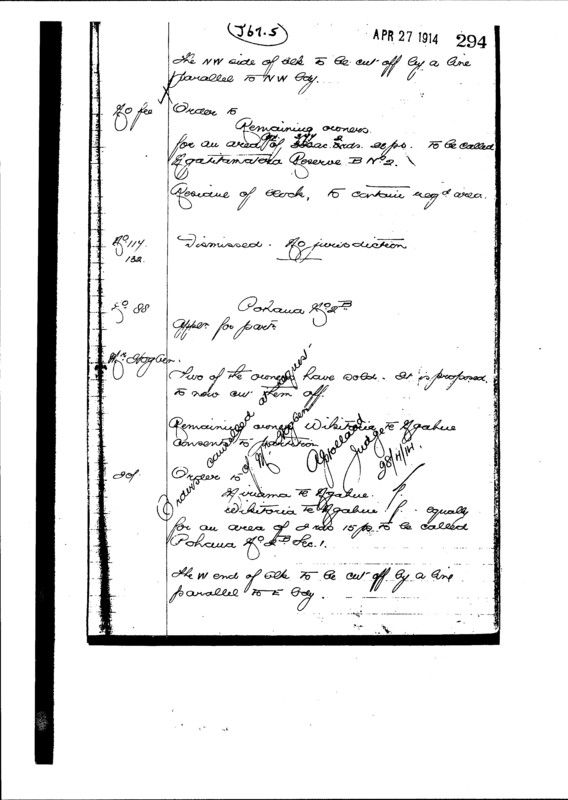 J67.5
APR 27 1914 294
The NW side of blk to be cut off by a line
parallel to NW bdy.
No fee Order to
Remaining owners
for an area of ac. rds. po. to be called
Ngatitamatea Reserve B No 2.
Residue of block, to contain req'd area.
No 114. Dismissed. No jurisdiction
132.
No 88 Pohaua No 2B
Appln for partn
Mr Hogben.
Two of the owners have sold. It is proposed
to now cut them off.
Remaining owner Wikitoria te Ngahue
consents to partition
Orders cancelled at request
of Mr Hogben
Judge
28/4/14.
20/ Order to
Miriama te Ngahue f.
Wikitoria te Ngahue f. equally
for an area of 2 rds 15 po. to be called
Pohaua No 2B Sec. 1.
The W end of blk to be cut off by a line
parallel to E bdy.